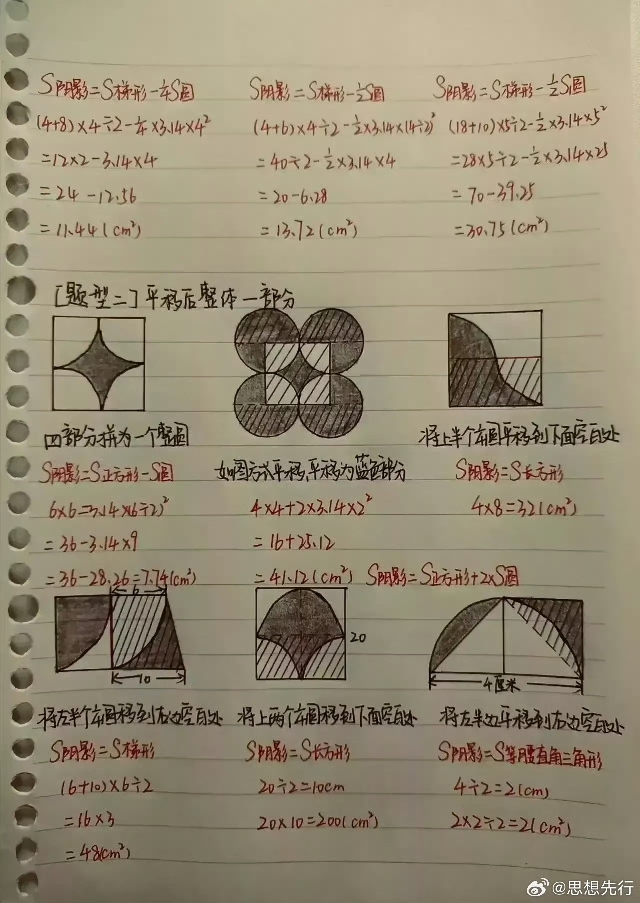 S阴影=S梯形-¼S圆
(4+8)×4÷2-¼×3.14×4²
=12×2-3.14×4
=24-12.56
=11.44(cm²)
S阴影=S梯形-½S圆
(4+6)×4÷2-½×3.14×(4÷2)²
=40÷2-½×3.14×4
=20-6.28
=13.72(cm²)
S阴影=S梯形-½S圆
(18+10)×5÷2-½×3.14×5²
=28×5÷2-½×3.14×25
=70-39.25
=30.75(cm²)
[题型二]平移后整体一部分
四部分拼为一个整圆
S阴影=S正方形-S圆
6×6=3.14×(6÷2)²
=36-3.14×9
=36-28.26=7.74(cm²)
如图方式平移,平移为蓝色部分
4×4+2×3.14×2²
=16+25.12
=41.12(cm²) S阴影=S正方形+2×S圆
将上半个亩圆平移到下面空白处
S阴影=S长方形
4×8=32(cm²)
6
10
将左半个亩圆移到右边空白处
S阴影=S梯形
(6+10)×6÷2
=16×3
=48(cm²)
20
将上两个亩圆移到下面空白处
S阴影=S长方形
20÷2=10cm
20×10=200(cm²)
4厘米
将左半边平移到右边空白处
S阴影=S等腰直角三角形
4÷2=2(cm)
2×2÷2=2(cm²)
@思想先行